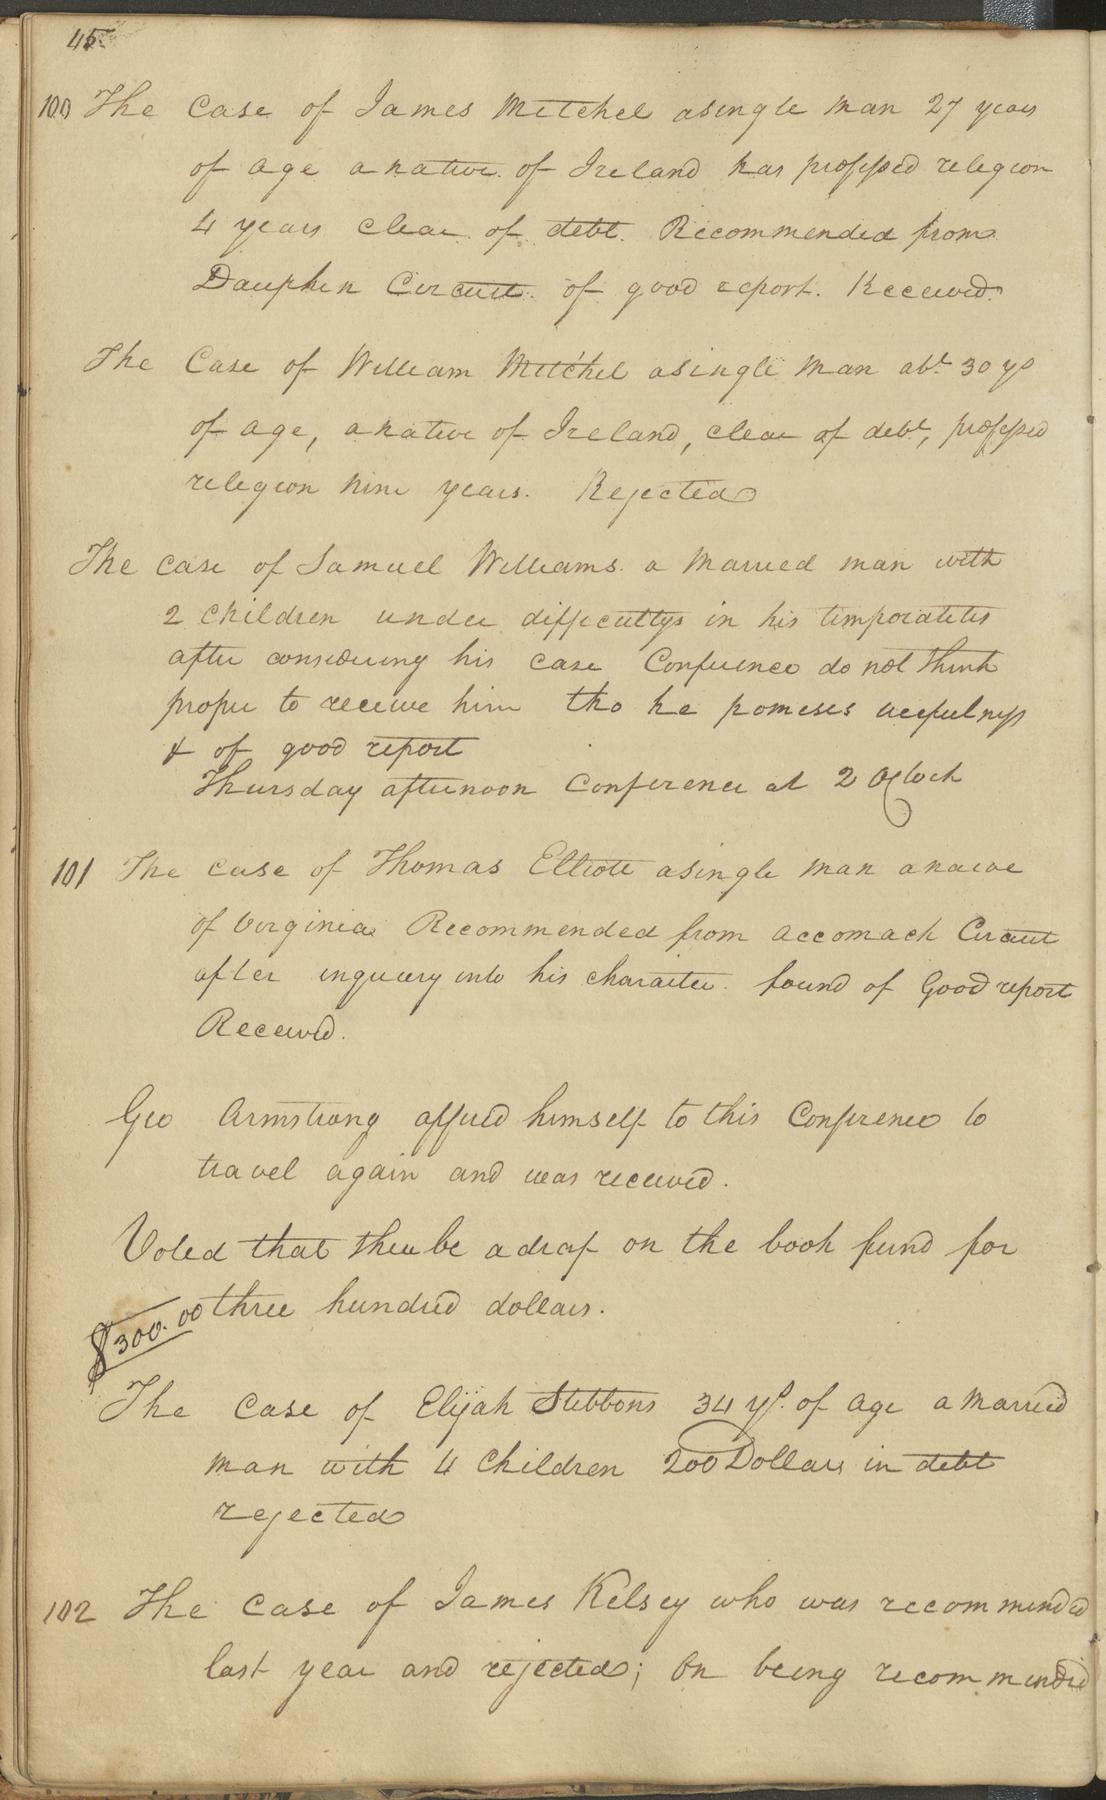 45
100 The Case of James Mitchel a single man 27 years
of age a native of Ireland has professed religion
4 years clear of debt. Recommended from
Dauphin Circuit. of good report. Received.
The Case of William Mitchel a single man abt 30 ys
of age, a native of Ireland, clear of debt, professed
religion nine years. Rejected
The case of Samuel Williams. a Married man with
2 Children under difficultys in his temporalities
after considering his case Conference do not think
proper to receive him tho he promeses usefulness
& of good report
Thursday afternoon Conference at 2 O,Clock
101 The case of Thomas Elliott a single man a native
of Virginia Recommended from Accomack Circuit
after inquiery into his character. found of Good report
Received.
Geo Armstrong offered himself to this Conference to
travel again and was received.
Voted that there be a draf on the book fund for
$300.00 three hundred dollars.
The Case of Elijah Stebbons 34 ys. of Age a Married
man with 4 Children 200 Dollars in debt
rejected
102 The Case of James Kelsey who was recommended
last year and rejected; On being recommended